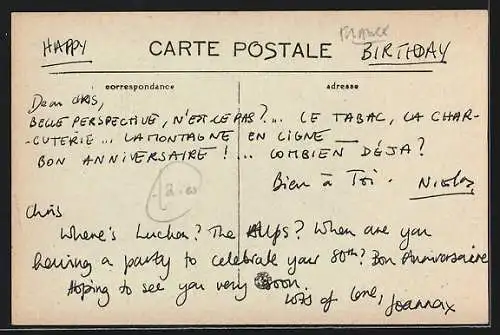 FRANCE
HAPPY CARTE POSTALE BIRTHDAY
correspondance adresse
Dear CHRIS,
BELLE PERSPECTIVE, N'EST-CE PAS?... LE TABAC, LA CHAR-
-CUTERIE... LA MONTAGNE EN LIGNE —
BON ANNIVERSAIRE !... COMBIEN DÉJA?
Bien à Toi. NICOLAS
Chris
Where's Luchon? The Alps? When are you
having a party to celebrate your 80th? Bon Anniversaire
Hoping to see you very soon.
Lots of love, Joanna x